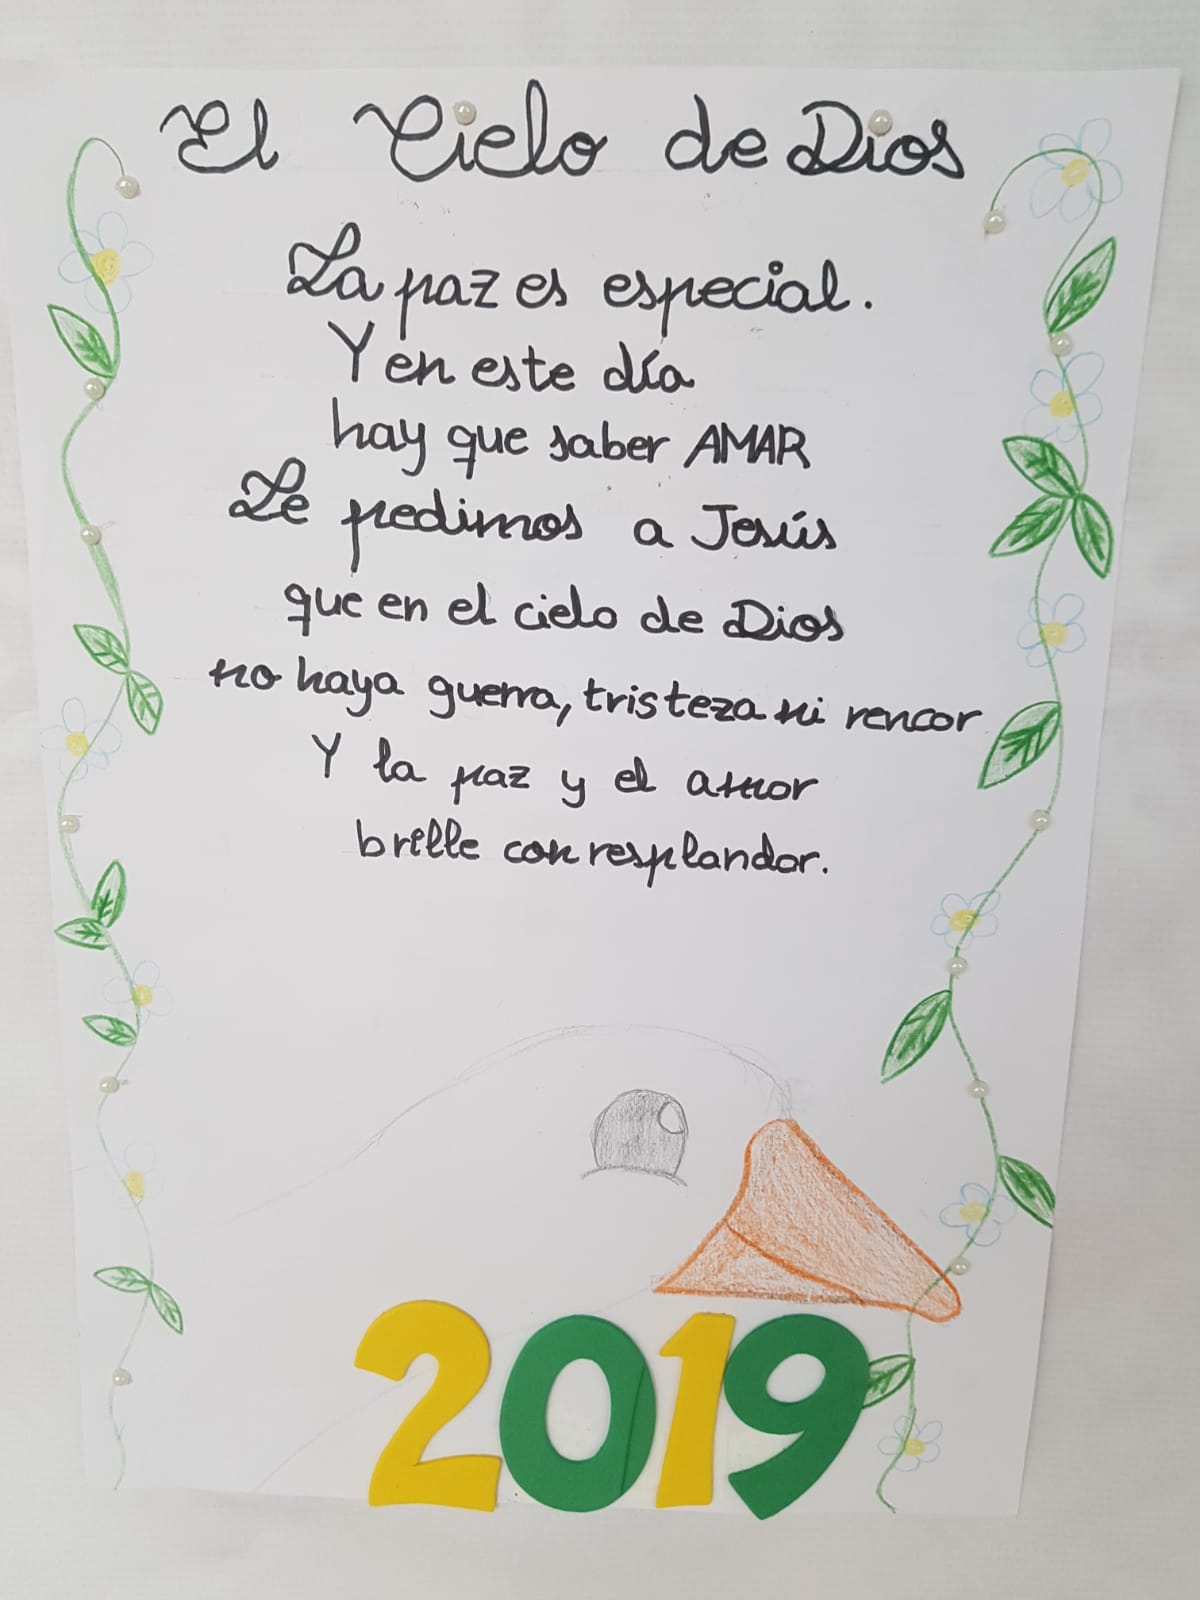 El Cielo de Dios
La paz es especial.
Y en este día
hay que saber AMAR
Le pedimos a Jesús
que en el cielo de Dios
no haya guerra, tristeza ni rencor
Y la paz y el amor
brille con resplandor.
2019